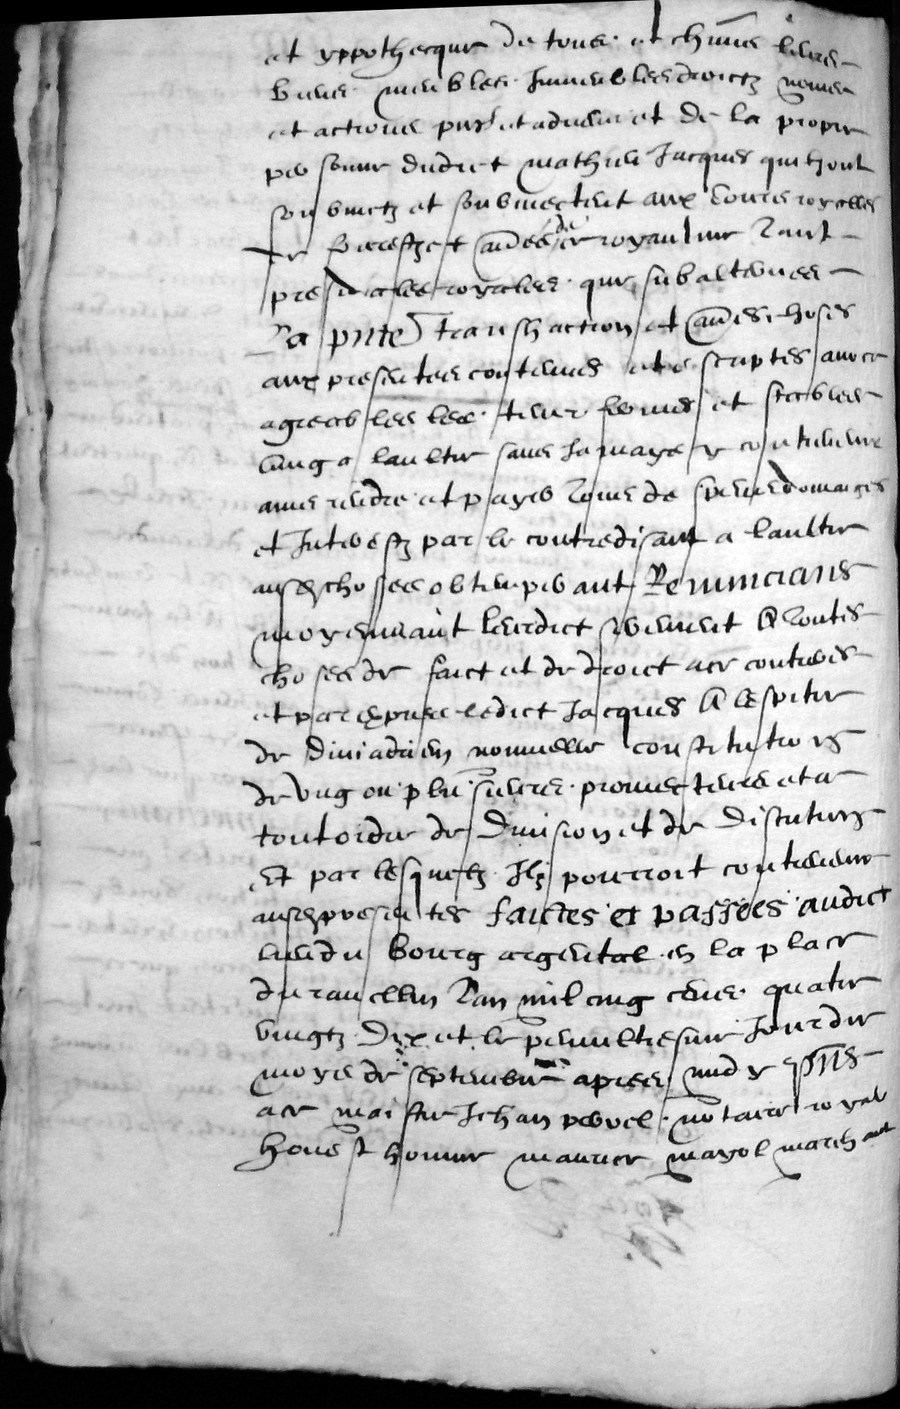 et yppothecque de tous et chūns leurs
biens meubles Immeubles droictz noms
et actions pnts et advenir et de la propre
personne dudict mathieu Jacques quil ont
soubmetz et soubmectent aux Cours royalles
de forestz et aues de ce royaulme tant
presidialles royalles que subalternes
La pnte transhaction et aues choses
aux presentes contenues et escriptes avoir
agreables les tenir fermes et stables
lung a laultre sans Jamays y contrevenir
ains rendre et payer tous despens domaiges
et Interestz par le contredisant a laultre
ausd choses obtemperant Renuncians
moyennant leurdict serement A toutes
choses de faict et de droict a ce contraires
et par expres ledict Jacques A lespitre
de divi adrien nouvelle constitutions
de ung ou plusieurs promecteurs et a
tout ordre de division et de discution
Et par lesquelz Ilz pourroit contrevenir
ausd presentes faictes et passees audict
lieu du bourg argental en la place
du ravellin Lan mil cinq cens quatre
vingtz dix et le penultiesme Jour du
moys de septembre apres midy pnts
a ce maistre Jehan pervel notaire royal
honest homme maurice mayol marchant